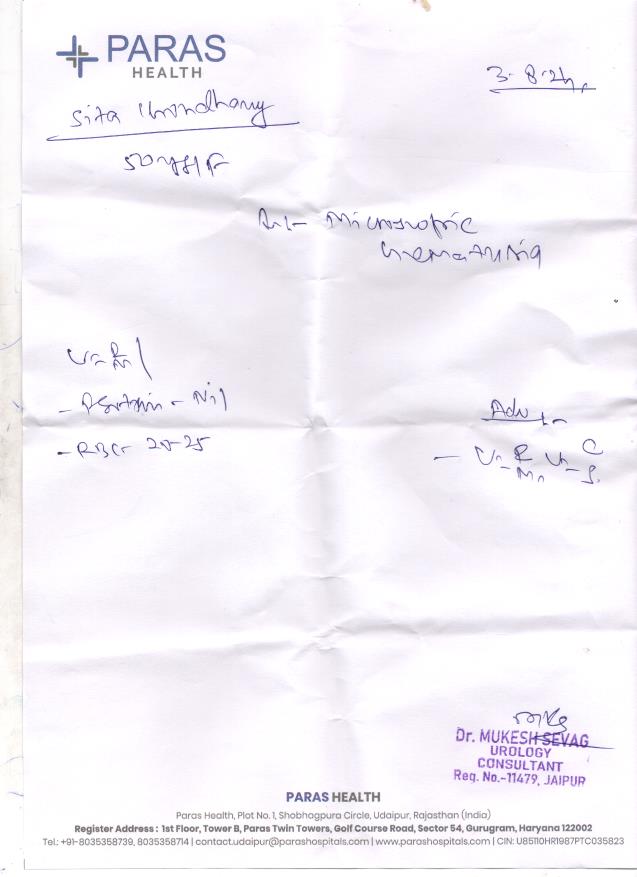 PARAS
HEALTH
3-8-24,
Sita Choudhary
50 yrs/F
Microscopic
Hematuria
U-R/M
- Protein - Nil
- RBC- 20-25
Adv :-
- U-R/M, U-C/S.
Dr. MUKESH SEVAG
UROLOGY
CONSULTANT
Reg. No.-11479, JAIPUR
PARAS HEALTH
Paras Health, Plot No. 1, Shobhagpura Circle, Udaipur, Rajasthan (India)
Register Address : 1st Floor, Tower B, Paras Twin Towers, Golf Course Road, Sector 54, Gurugram, Haryana 122002
Tel.: +91-8035358739, 8035358714 | contact.udaipur@parashospitals.com | www.parashospitals.com | CIN: U85110HR1987PTC035823